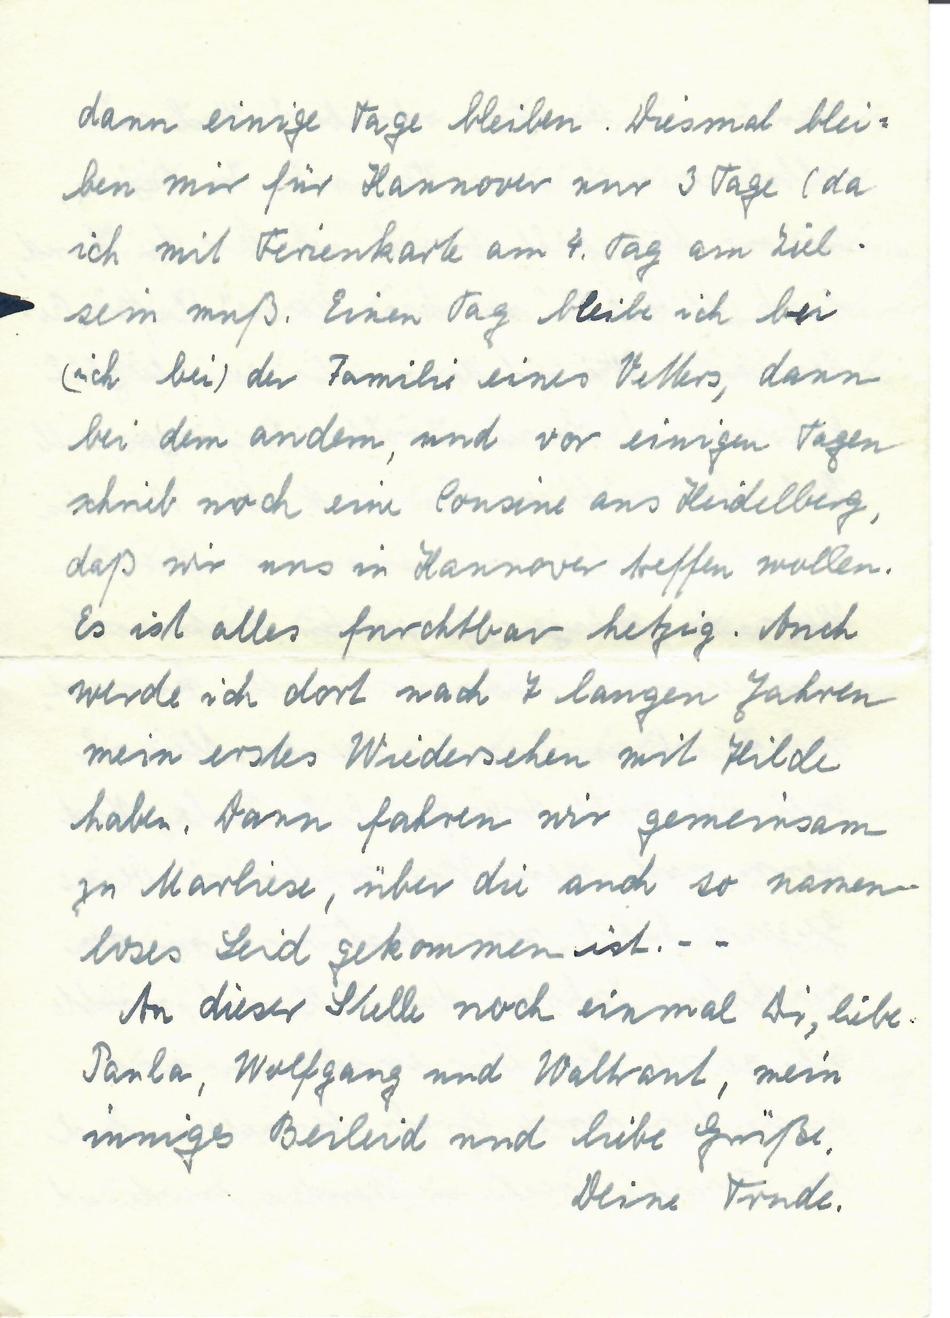 dann einige Tage bleiben. Diesmal blei=
ben mir für Hannover nur 3 Tage (da
ich mit Ferienkarte am 4. Tag am Ziel
sein muß. Einen Tag bleibe ich bei
(ich bei) der Familie eines Vetters, dann
bei dem andern, und vor einigen Tagen
schrieb noch eine Cousine aus Heidelberg,
daß wir uns in Hannover treffen wollen.
Es ist alles furchtbar hetzig. Auch
werde ich dort nach 7 langen Jahren
mein erstes Wiedersehen mit Hilde
haben. Dann fahren wir gemeinsam
zu Marliese, über die auch so namen-
loses Leid gekommen ist. - -
An dieser Stelle noch einmal Dir, liebe
Paula, Wolfgang und Waltraut, mein
inniges Beileid und liebe Grüße.
Deine Trude.